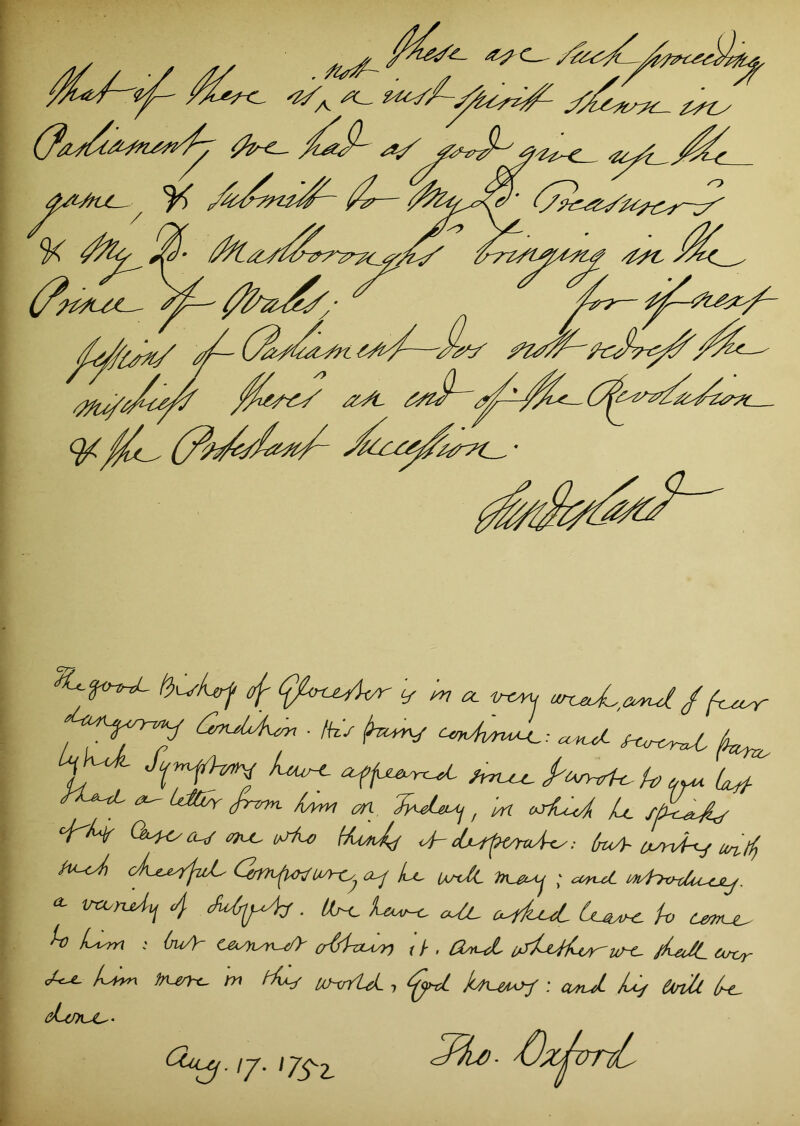 These are such proceeding
not
that if there is ^ a just spiritt shewn in
Parliament, we had as good give up the
game, & submitt to My Ld. Treasurers
& My Ld. Marlboroughs bringing in the
Prince of Wales; for if next
sessions of Parliament dos nott redress the
mischiefs theres an end of the Revolution
& the Protestant Succession.
Sunderland
The good Bishop of Glocester is in a very weak, and I fear
dangerous Condition. His pains continue: and several para
lytick Symptoms have appeared since I wrote to you last
I had a Letter from him on Friday, in which he speaks
of his Case as one who thinks it desperate: but writes with
such chearful Composure, as he well may; and introduces.
a variety of Subjects. We have all asked Leave to come
to him: but cannot obtain it. And whether we shall ever
see him more in this world, God knows: and his Will be
done.
Aug. 17. 1752
Tho. Oxford